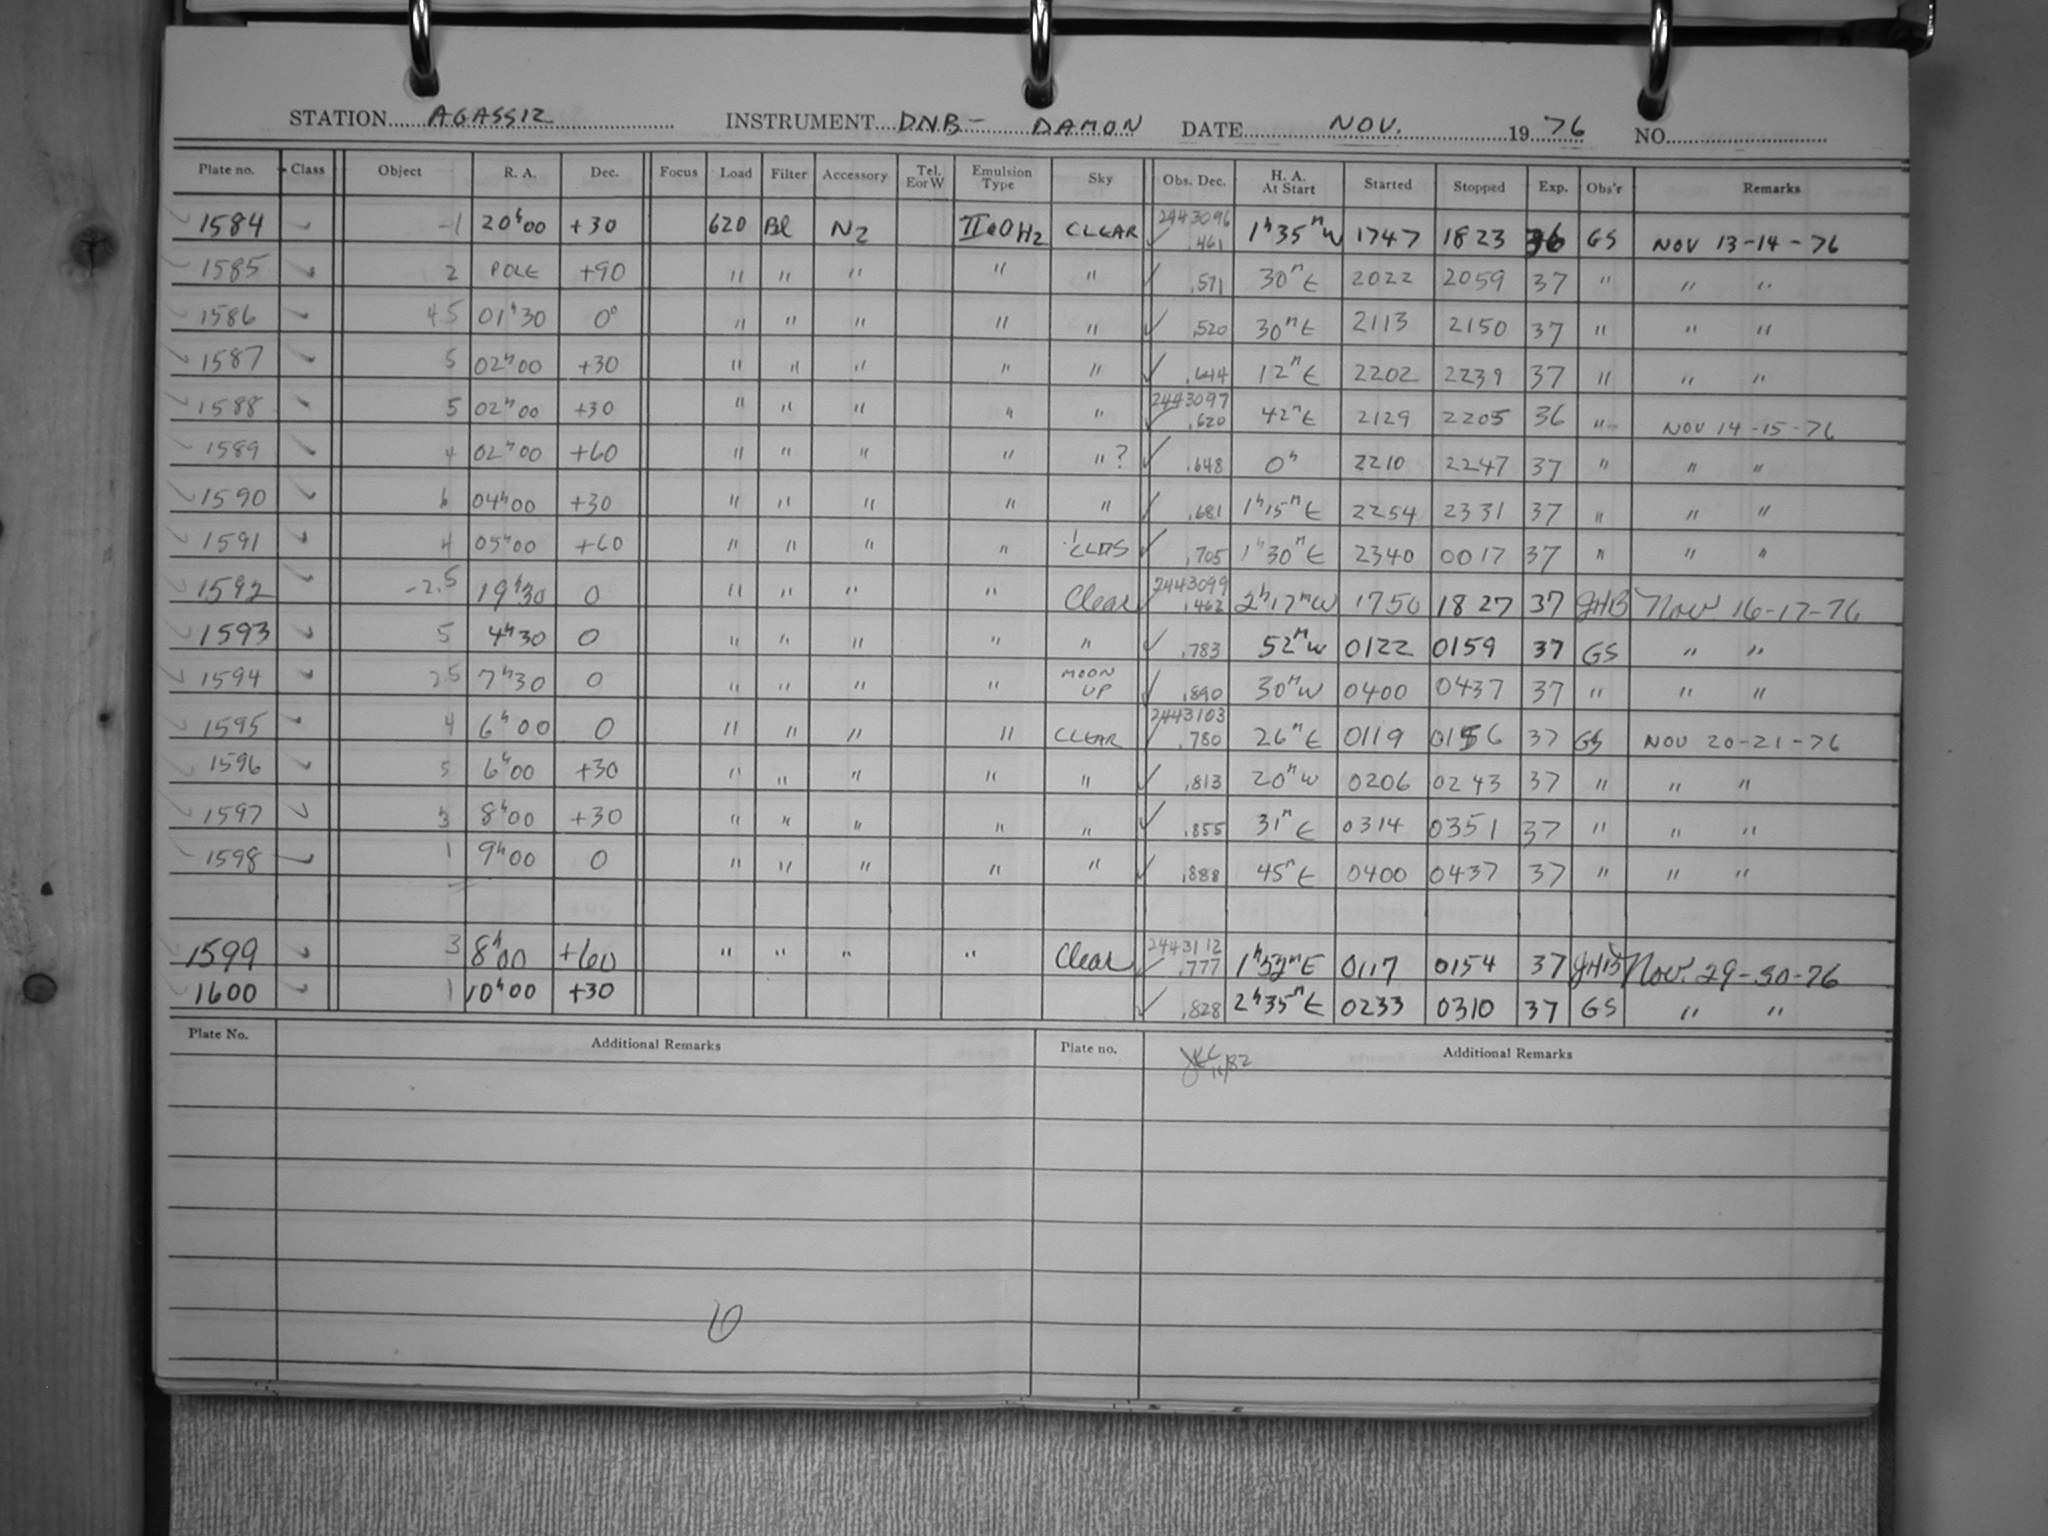 STATION AGASSIZ INSTRUMENT DNB- DAMON DATE NOV. 1976 NO.
Plate no. Class Object R. A. Dec. Focus Load Filter Accessory Tel. E or W Emulsion Type Sky Obs. Dec. H. A. At Start Started Stopped Exp. Obs'r Remarks
1584 -1 20h00 +30 620 Bl N2 IIaOH2 CLEAR 2443096 .461 1h35m W 1747 1823 36 GS NOV 13-14-76
1585 2 POLE +90 " " " " " .571 30m E 2022 2059 37 " " "
1586 4.5 01h30 0° " " " " " .520 30m E 2113 2150 37 " " "
1587 5 02h00 +30 " " " " " .644 12m E 2202 2239 37 " " "
1588 5 02h00 +30 " " " " " 2443097 .620 42m E 2129 2205 36 " NOV 14-15-76
1589 4 02h00 +60 " " " " " ? .648 0h 2210 2247 37 " " "
1590 6 04h00 +30 " " " " " .681 1h15m E 2254 2331 37 " " "
1591 4 05h00 +60 " " " " CLDS .705 1h30m E 2340 0017 37 " " "
1592 -2.5 19h30 0 " " " " Clear 2443099 .462 2h17m W 1750 1827 37 JHB Nov. 16-17-76
1593 5 4h30 0 " " " " " .783 52m W 0122 0159 37 GS " "
1594 2.5 7h30 0 " " " " MOON UP .890 30m W 0400 0437 37 " " "
1595 4 6h00 0 " " " " CLEAR 2443103 .780 26m E 0119 0156 37 GS NOV 20-21-76
1596 5 6h00 +30 " " " " " .813 20m W 0206 0243 37 " " "
1597 3 8h00 +30 " " " " " .855 31m E 0314 0351 37 " " "
1598 1 9h00 0 " " " " " .888 45m E 0400 0437 37 " " "
1599 3 8h00 +60 " " " " Clear 2443112 .777 1h52m E 0117 0154 37 JHB Nov. 29-30-76
1600 1 10h00 +30 .828 2h35m E 0233 0310 37 GS " "
Plate No. Additional Remarks Plate no. Additional Remarks
11/82